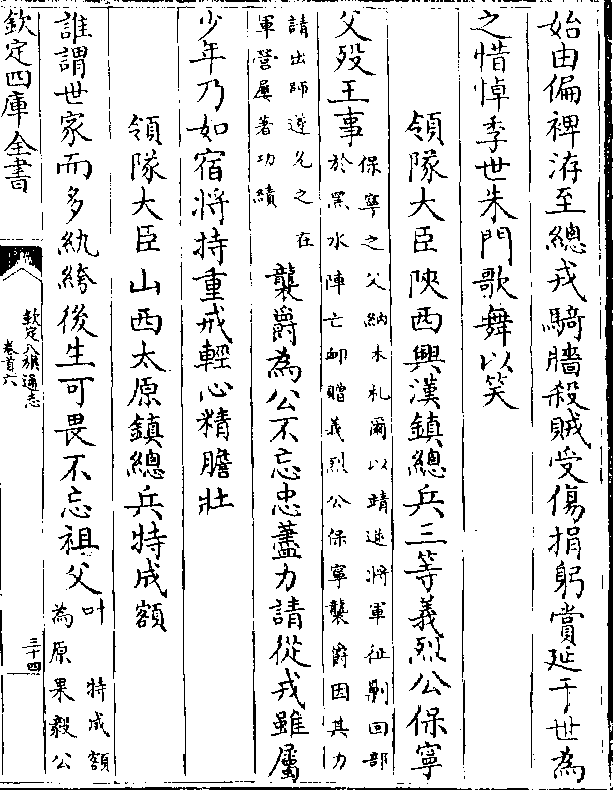 始由偏裨洊至總戎騎牆殺賊受傷捐躬賞延于世為
之惜悼季世朱門歌舞以笑
領隊大臣陜西興漢鎮總兵三等義烈公保寧
父歿王事保寧之父納木札爾以靖逆將軍征勦回部
於黑水陣亡卹贈義烈公保寧襲爵因其力
請出師遂允之在
軍營屢著功績襲爵為公不忘忠藎力請從戎雖屬
少年乃如宿將持重戒輕心精膽壯
領隊大臣山西太原鎮總兵特成額
誰謂世家而多紈綺後生可畏不忘祖父叶特成額
為原果毅公
欽定四庫全書
欽定八旗通志
卷首六
三十四